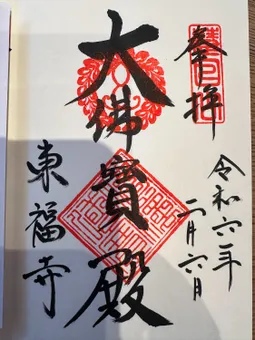 奉拝
令和六年
二月六日
大佛寳殿
東福寺